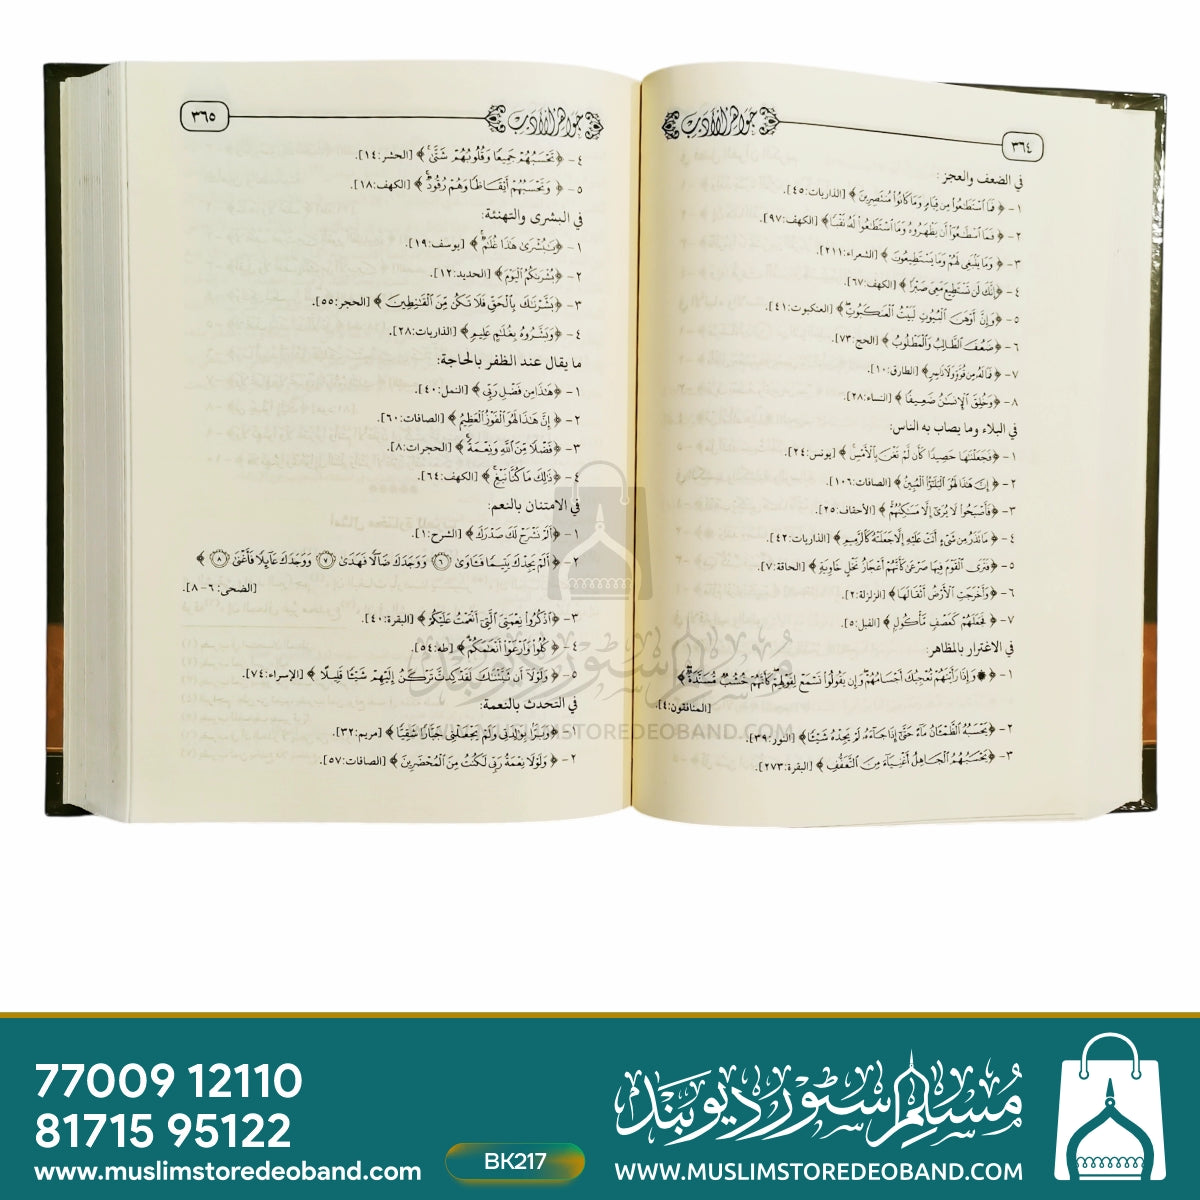 ٣٦٤
جواهر الأدب
في الضعف والعجز:
١- ﴿ فَمَا اسْتَطَاعُوا مِن قِيَامٍ وَمَا كَانُوا مُنتَصِرِينَ ﴾ [الذاريات:٤٥].
٢- ﴿ فَمَا اسْطَاعُوا أَن يَظْهَرُوهُ وَمَا اسْتَطَاعُوا لَهُ نَقْبًا﴾ [الكهف:٩٧].
٣- ﴿ وَمَا يَنبَغِي لَهُمْ وَمَا يَسْتَطِيعُونَ ﴾ [الشعراء:٢١١].
٤- ﴿ إِنَّكَ لَن تَسْتَطِيعَ مَعِيَ صَبْرًا ﴾ [الكهف:٦٧].
٥- ﴿وَإِنَّ أَوْهَنَ الْبُيُوتِ لَبَيْتُ الْعَنكَبُوتِ﴾ [العنكبوت:٤١].
٦- ﴿ضَعُفَ الطَّالِبُ وَالْمَطْلُوبُ ﴾ [الحج:٧٣].
٧- ﴿فَمَا لَهُ مِن قُوَّةٍ وَلَا نَاصِرٍ﴾ [الطارق:١٠].
٨- ﴿وَخُلِقَ الْإِنسَانُ ضَعِيفًا ﴾ [النساء:٢٨].
في البلاء وما يصاب به الناس:
١- ﴿فَجَعَلْنَاهَا حَصِيدًا كَأَن لَّمْ تَغْنَ بِالْأَمْسِ ﴾ [يونس:٢٤].
٢- ﴿ إِنَّ هَٰذَا لَهُوَ الْبَلَاءُ الْمُبِينُ ﴾ [الصافات:١٠٦].
٣- ﴿فَأَصْبَحُوا لَا يُرَىٰ إِلَّا مَسَاكِنُهُمْ ﴾ [الأحقاف:٢٥].
٤- ﴿ مَا تَذَرُ مِن شَيْءٍ أَتَتْ عَلَيْهِ إِلَّا جَعَلَتْهُ كَالرَّمِيمِ ﴾ [الذاريات:٤٢].
٥- ﴿فَتَرَى الْقَوْمَ فِيهَا صَرْعَىٰ كَأَنَّهُمْ أَعْجَازُ نَخْلٍ خَاوِيَةٍ ﴾ [الحاقة:٧].
٦- ﴿وَأَخْرَجَتِ الْأَرْضُ أَثْقَالَهَا ﴾ [الزلزلة:٢].
٧- ﴿فَجَعَلَهُمْ كَعَصْفٍ مَّأْكُولٍ ﴾ [الفيل:٥].
في الاغترار بالمظاهر:
١- ﴿وَإِذَا رَأَيْتَهُمْ تُعْجِبُكَ أَجْسَامُهُمْ وَإِن يَقُولُوا تَسْمَعْ لِقَوْلِهِمْ كَأَنَّهُمْ خُشُبٌ مُّسَنَّدَةٌ ﴾
[المنافقون:٤].
٢- ﴿يَحْسَبُهُ الظَّمْآنُ مَاءً حَتَّىٰ إِذَا جَاءَهُ لَمْ يَجِدْهُ شَيْئًا ﴾ [النور:٣٩].
٣- ﴿يَحْسَبُهُمُ الْجَاهِلُ أَغْنِيَاءَ مِنَ التَّعَفُّفِ ﴾ [البقرة:٢٧٣].
جواهر الأدب
٣٦٥
٤- ﴿تَحْسَبُهُمْ جَمِيعًا وَقُلُوبُهُمْ شَتَّىٰ ﴾ [الحشر:١٤].
٥- ﴿ وَتَحْسَبُهُمْ أَيْقَاظًا وَهُمْ رُقُودٌ ﴾ [الكهف:١٨].
في البشرى والتهنئة:
١- ﴿يَا بُشْرَىٰ هَٰذَا غُلَامٌ ﴾ [يوسف:١٩].
٢- ﴿بُشْرَاكُمُ الْيَوْمَ﴾ [الحديد:١٢].
٣- ﴿بَشَّرْنَاكَ بِالْحَقِّ فَلَا تَكُن مِّنَ الْقَانِطِينَ ﴾ [الحجر:٥٥].
٤- ﴿وَبَشَّرُوهُ بِغُلَامٍ عَلِيمٍ ﴾ [الذاريات:٢٨].
ما يقال عند الظفر بالحاجة:
١- ﴿هَٰذَا مِن فَضْلِ رَبِّي ﴾ [النمل:٤٠].
٢- ﴿ إِنَّ هَٰذَا لَهُوَ الْفَوْزُ الْعَظِيمُ ﴾ [الصافات:٦٠].
٣- ﴿فَضْلًا مِّنَ اللَّهِ وَنِعْمَةً ﴾ [الحجرات:٨].
٤- ﴿ذَٰلِكَ مَا كُنَّا نَبْغِ ﴾ [الكهف:٦٤].
في الامتنان بالنعم:
١- ﴿أَلَمْ نَشْرَحْ لَكَ صَدْرَكَ ﴾ [الشرح:١].
٢- ﴿ أَلَمْ يَجِدْكَ يَتِيمًا فَآوَىٰ ﴿٦﴾ وَوَجَدَكَ ضَالًّا فَهَدَىٰ ﴿٧﴾ وَوَجَدَكَ عَائِلًا فَأَغْنَىٰ ﴿٨﴾ ﴾
[الضحى: ٦-٨].
٣- ﴿اذْكُرُوا نِعْمَتِيَ الَّتِي أَنْعَمْتُ عَلَيْكُمْ ﴾ [البقرة:٤٠].
٤- ﴿ كُلُوا وَارْعَوْا أَنْعَامَكُمْ ﴾ [طه:٥٤].
٥- ﴿وَلَوْلَا أَن ثَبَّتْنَاكَ لَقَدْ كِدتَّ تَرْكَنُ إِلَيْهِمْ شَيْئًا قَلِيلًا ﴾ [الإسراء:٧٤].
في التحدث بالنعمة:
١- ﴿وَبَرًّا بِوَالِدَتِي وَلَمْ يَجْعَلْنِي جَبَّارًا شَقِيًّا ﴾ [مريم:٣٢].
٢- ﴿ وَلَوْلَا نِعْمَةُ رَبِّي لَكُنتُ مِنَ الْمُحْضَرِينَ ﴾ [الصافات:٥٧].
مسلم سٹور دیوبند
WWW.MUSLIMSTOREDEOBAND.COM
77009 12110
81715 95122
www.muslimstoredeoband.com
BK217
مسلم سٹور دیوبند
WWW.MUSLIMSTOREDEOBAND.COM